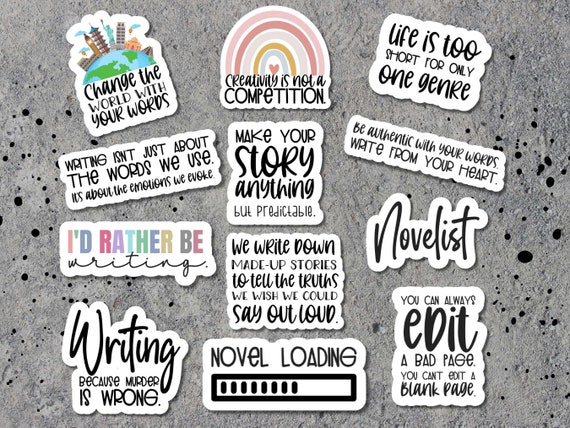 Change the
WORLD WITH
YOUR WORDS
Creativity is not a
COMPETITION.
LIFE IS TOO
SHORT FOR ONLY
ONE GENRE
WRITING ISN'T JUST ABOUT
THE WORDS WE USE.
It's about the emotions we evoke.
MAKE YOUR
STORY
anything
but predictable.
Be authentic with your words.
WRITE FROM YOUR HEART.
I'D RATHER BE
writing.
WE WRITE DOWN
MADE-UP STORIES
TO TELL THE TRUTHS
WE WISH WE COULD
SAY OUT LOUD.
Novelist
Writing
BECAUSE MURDER
IS WRONG.
NOVEL LOADING
YOU CAN ALWAYS
EDIT
A BAD PAGE.
YOU CAN'T EDIT A
BLANK PAGE.